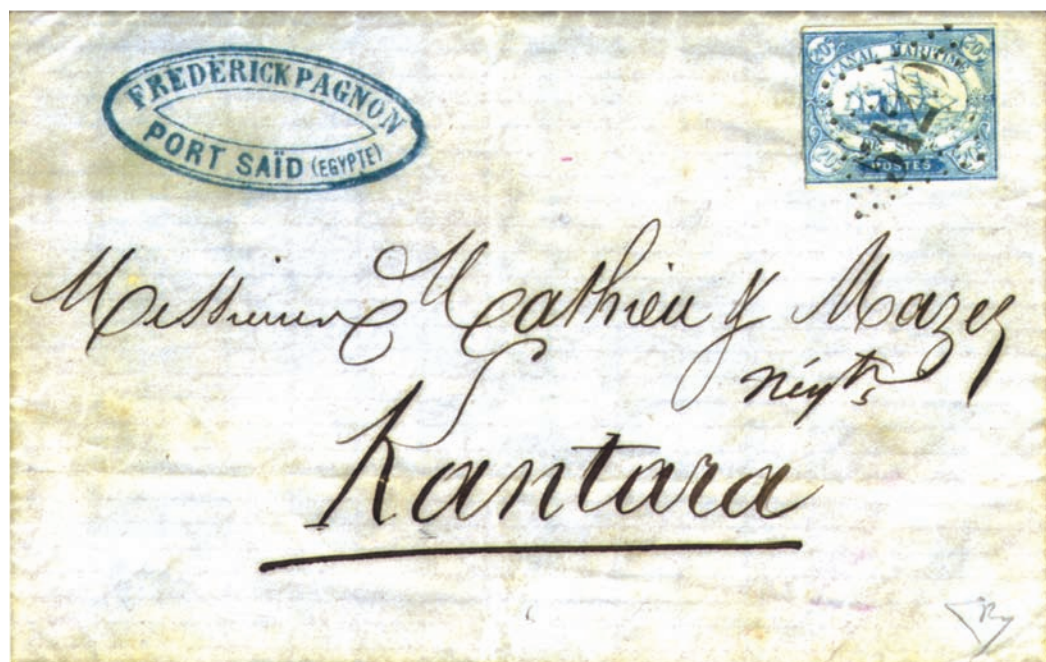 FREDERICK PAGNON
PORT SAÏD (EGYPTE)
20c 20c
CANAL MARITIME
POSTES
20c
Messieurs Mathieu & Mazez
Négts
Kantara